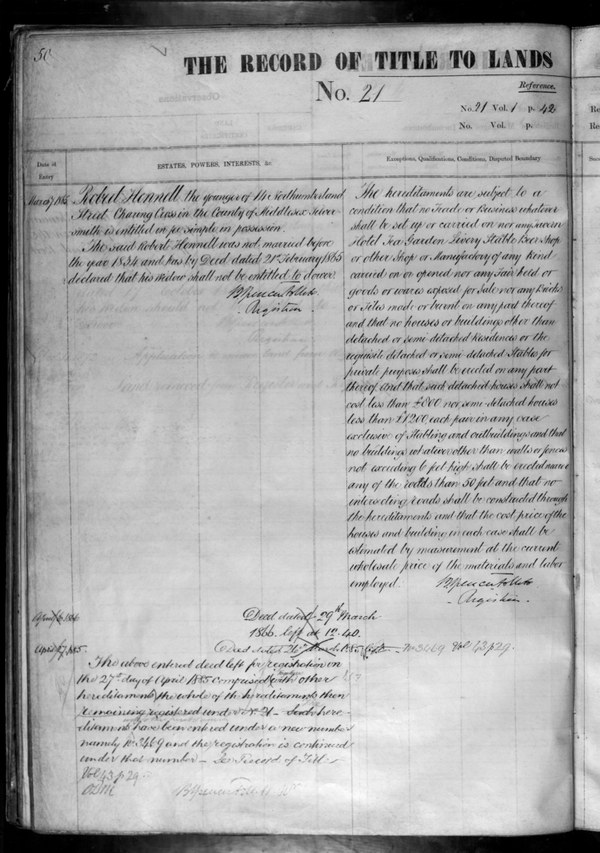 50
THE RECORD OF TITLE TO LANDS
No. 21
Reference.
No. 21 Vol. 1 p. 42
No. Vol. p.
Date of
Entry
ESTATES, POWERS, INTERESTS, &c.
Exemptions, Qualifications, Conditions, Disputed Boundary
Robert Hennell the younger of 14 Northumberland
Street Charing Cross in the County of Middlesex Silver
smith is entitled in fee simple in possession.
The said Robert Hennell was not married before
the year 1834 and has by Deed dated 21st February 1865
declared that his Widow shall not be entitled to dower.
Registrar.
The hereditaments are subject to a
condition that no Trade or Business whatever
shall be set up or carried on nor any
Hotel Tea Garden Livery Stable Beer Shop
or other Shop or Manufactory of any Kind
carried on or opened nor any Fair held or
goods or wares exposed for Sale nor any Bricks
or Tiles made or burnt on any part thereof
and that no houses or buildings other than
detached or semi-detached Residences or the
requisite detached or semi-detached Stables for
private purposes shall be erected on any part
thereof and that such detached houses shall not
cost less than £800 nor semi-detached houses
less than £1200 each pair in any case
exclusive of Stabling and outbuildings and that
no buildings whatever other than walls or fences
not exceeding 6 feet high shall be erected nearer
any of the roads than 50 feet and that no
intersecting roads shall be constructed through
the hereditaments and that the cost price of the
houses and building in each case shall be
estimated by measurement at the current
wholesale price of the materials and labor
employed.
Registrar.
Deed dated 29th March
1866. left at 12.40.
April 27, 1885.
Deed dated March 1885 left No 3469 Vol 43 p 29.
The above entered deed left for registration on
the 27th day of April 1885 comprised with other
hereditaments the whole of the hereditaments then
remaining registered under No. 21 - Such here-
ditaments have been entered under a new number
namely No 3469 and the registration is continued
under that number - See Record of Title
Vol 43 p 29.